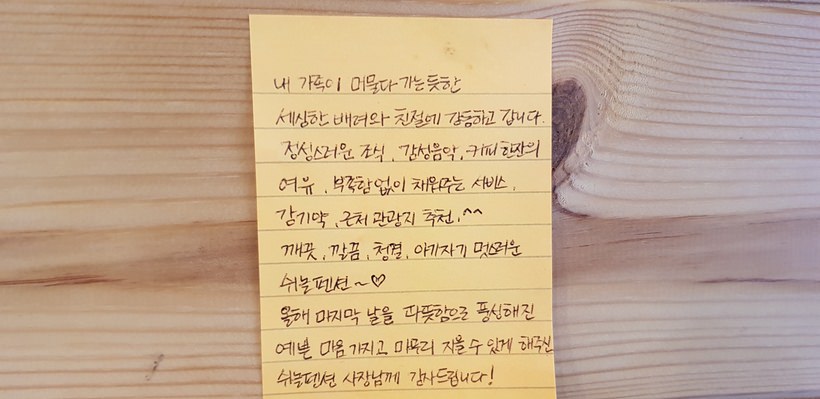 내 가족이 머물다 가는듯한
세심한 배려와 친절에 감동하고 갑니다.
정성스러운 조식, 감성음악, 커피한잔의
여유, 부족함없이 채워주는 서비스,
감기약, 근처 관광지 추천, ^^
깨끗, 깔끔, 청결, 아기자기 멋스러운
쉬놀펜션~♡
올해 마지막 날을 따뜻함으로 풍성해진
예쁜 마음 가지고 마무리 지을 수 있게 해주신
쉬놀펜션 사장님께 감사드립니다!